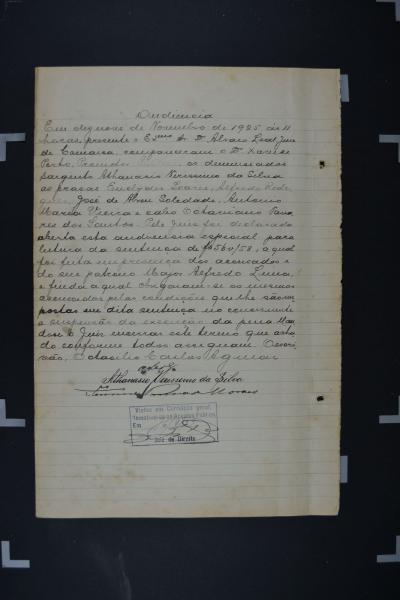 Audiencia
Em dezenove de Novembro de 1925 ás 11
horas, presente o Exmo Sr. Dr Alvaro Leal Juiz
de Comarca, compareceram o Dr
Porto, Promotor os denunciados
sargento Athanasio Verissimo da Silva
as praças Euclydes Soares, Alfredo Rodri
gues, José de Abreu Soledade, Antonio
Maria Vieira e cabo Octaviano Tava
res dos Santos. Pelo Juiz foi declarado
aberta esta audiencia especial para
leitura da sentença de fls 56v/58, a qual
foi feita em presença dos accusados e
do seu patrono Major Alfredo Lima,
e finda a qual obrigaram-se os mesmos
accusados pelas condições que lhe são im
postas em dita sentença no concernente
a suspensão da execução da pena. Man
dou o Juiz lavrar este termo que acha
do conforme todos assignam. O escri
vão, Octacilio Carlos Aguiar
Athanasio Verissimo da Silva
Moraes
Visto em Correição geral.
Em
Juiz de Direito